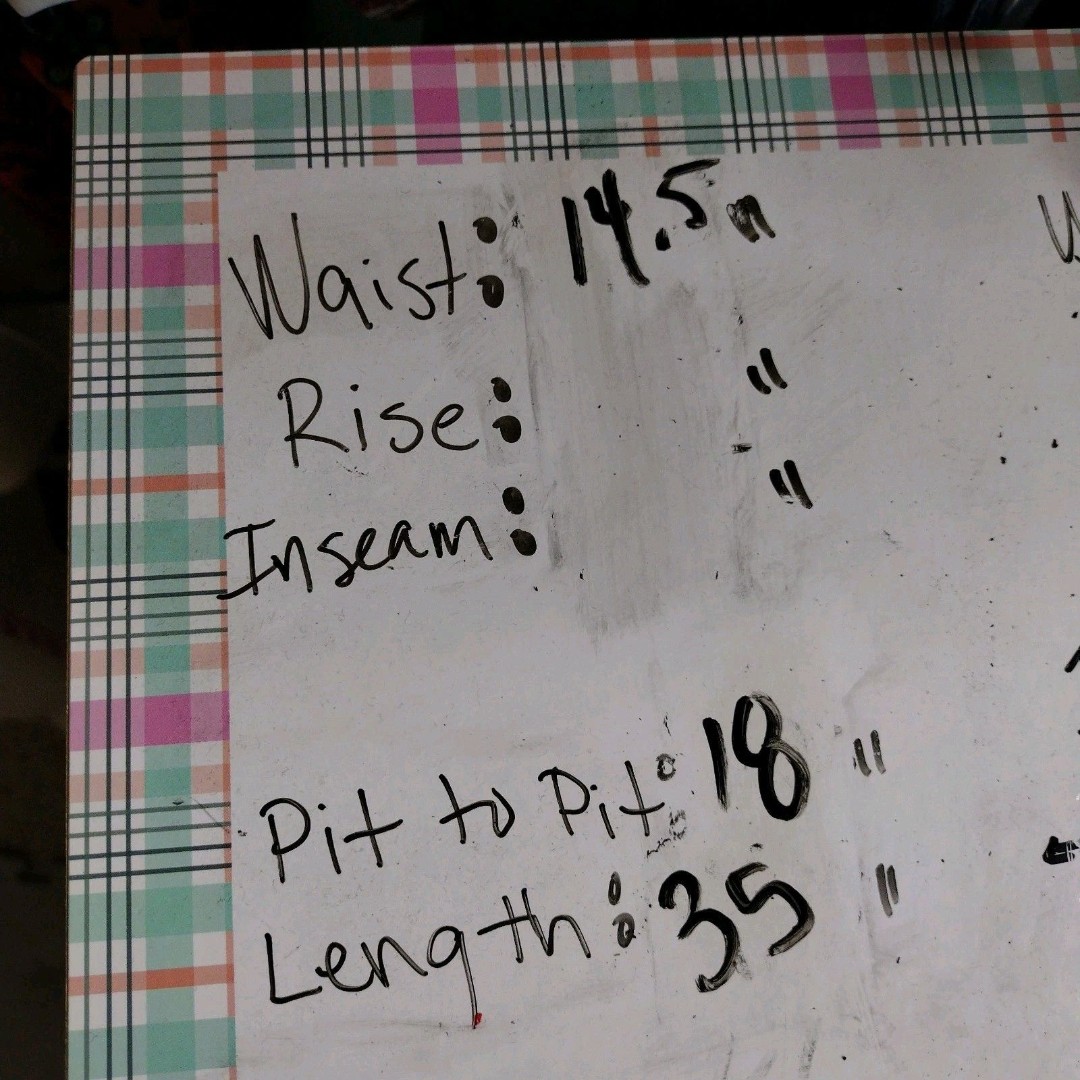 Waist: 14.5"
Rise: "
Inseam: "
Pit to Pit: 18 "
Length: 35 "